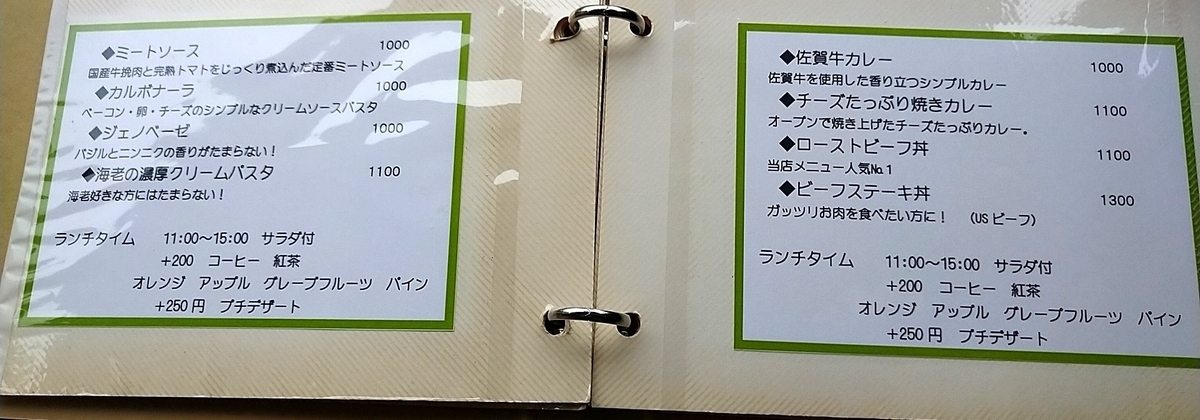 ◆ミートソース 1000
国産牛挽肉と完熟トマトをじっくり煮込んだ定番ミートソース
◆カルボナーラ 1000
ベーコン・卵・チーズのシンプルなクリームソースパスタ
◆ジェノベーゼ 1000
バジルとニンニクの香りがたまらない！
◆海老の濃厚クリームパスタ 1100
海老好きな方にはたまらない！
ランチタイム 11:00～15:00 サラダ付
+200 コーヒー 紅茶
オレンジ アップル グレープフルーツ パイン
+250円 プチデザート
◆佐賀牛カレー 1000
佐賀牛を使用した香り立つシンプルカレー
◆チーズたっぷり焼きカレー 1100
オーブンで焼き上げたチーズたっぷりカレー。
◆ローストビーフ丼 1100
当店メニュー人気№1
◆ビーフステーキ丼 1300
ガッツリお肉を食べたい方に！ （USビーフ）
ランチタイム 11:00～15:00 サラダ付
+200 コーヒー 紅茶
オレンジ アップル グレープフルーツ パイン
+250円 プチデザート